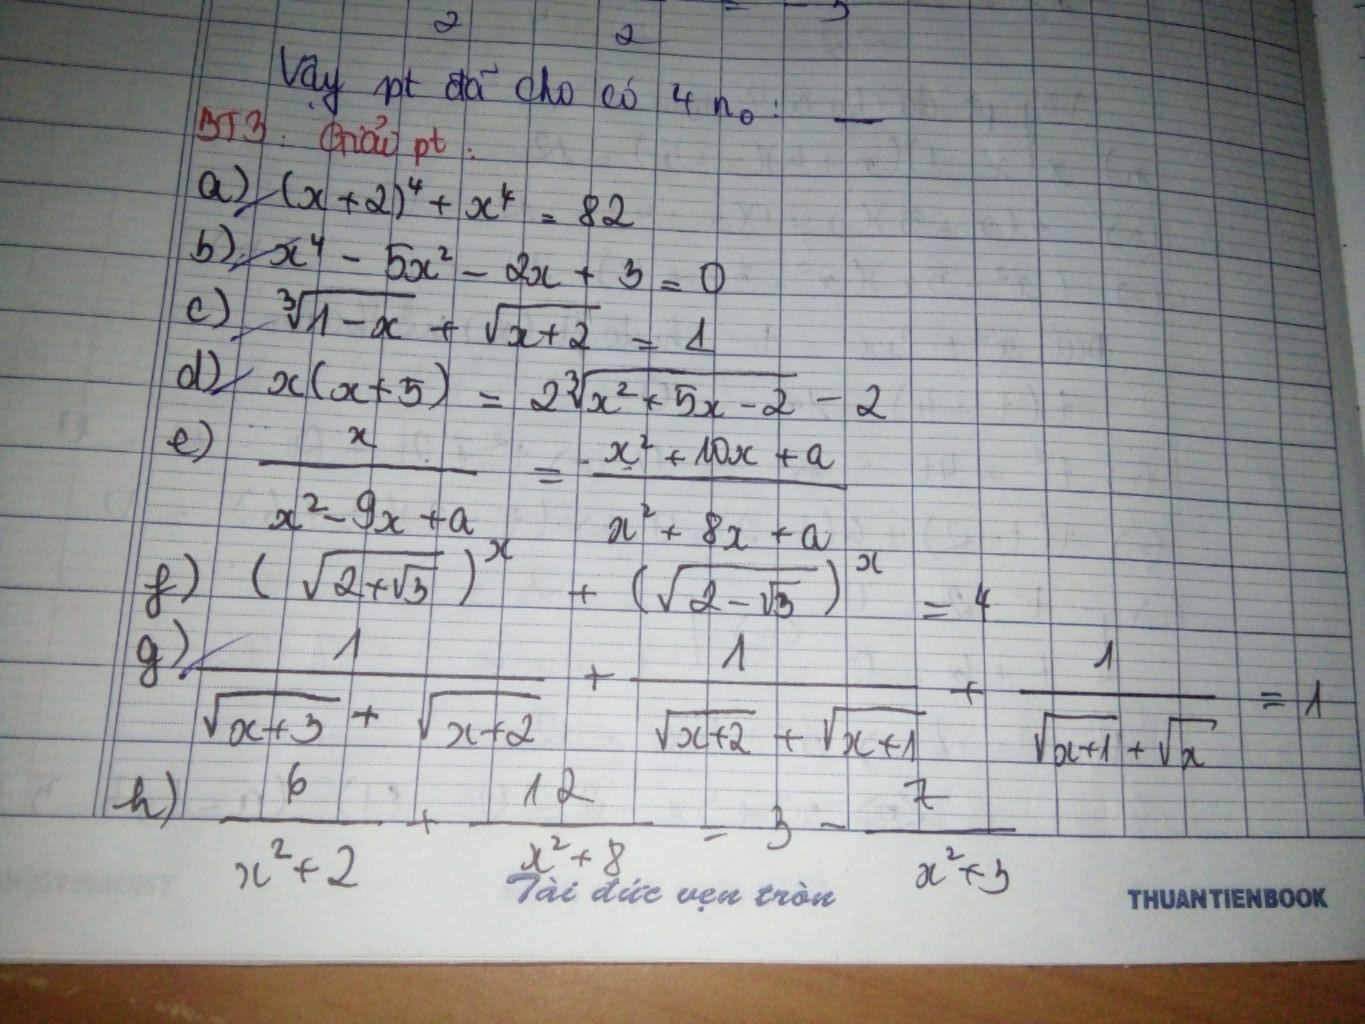 2 2 = -5
Vậy pt đã cho có 4 no:
BT3: Giải pt:
a) (x+2)⁴ + x⁴ = 82
b) x⁴ - 5x² - 2x + 3 = 0
c) ∛(1-x) + √(x+2) = 1
d) x(x+5) = 2∛(x²+5x-2) - 2
e) x/(x²-9x+a) = (x²+10x+a)/(x²+8x+a)
f) (√(2+√3))ˣ + (√(2-√3))ˣ = 4
g) 1/(√(x+3) + √(x+2)) + 1/(√(x+2) + √(x+1)) + 1/(√(x+1) + √x) = 1
h) 6/(x²+2) + 12/(x²+8) = 3 - 7/(x²+3)
Tài đức vẹn tròn
THUANTIENBOOK